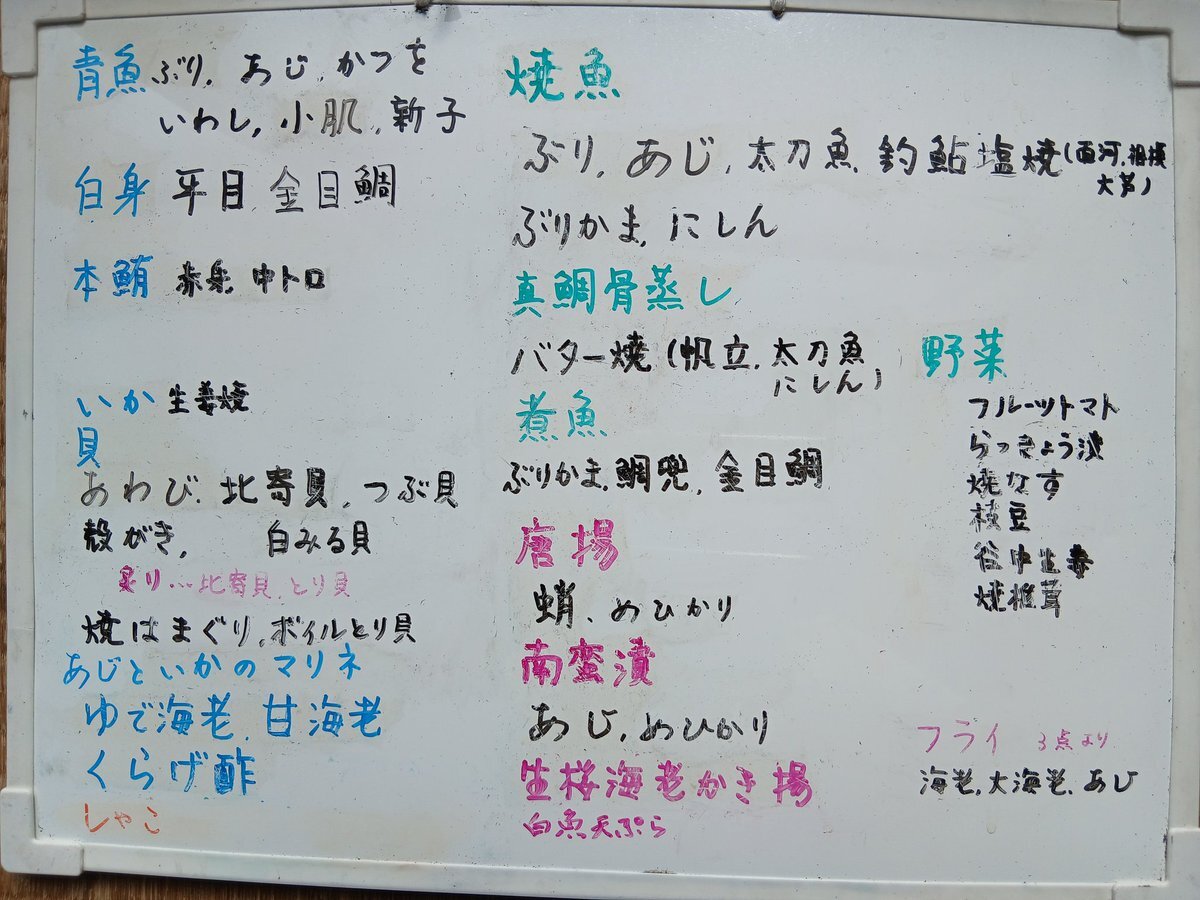 青魚 ぶり、あじ、かつを
いわし、小肌、新子
白身 平目 金目鯛
本鮪 赤身、中トロ
いか 生姜焼
貝
あわび、北寄貝、つぶ貝
殻がき、 白みる貝
炙り…北寄貝、とり貝
焼はまぐり、ボイルとり貝
あじといかのマリネ
ゆで海老、甘海老
くらげ酢
しゃこ
焼魚
ぶり、あじ、太刀魚 釣鮎塩焼(面河、相模
大芦)
ぶりかま、にしん
真鯛骨蒸し
バター焼(帆立、太刀魚
にしん)
煮魚
ぶりかま、鯛兜、金目鯛
唐揚
蛸、めひかり
南蛮漬
あじ、めひかり
生桜海老かき揚
白魚天ぷら
野菜
フルーツトマト
らっきょう漬
焼なす
枝豆
谷中生姜
焼椎茸
フライ 3点より
海老、大海老、あじ